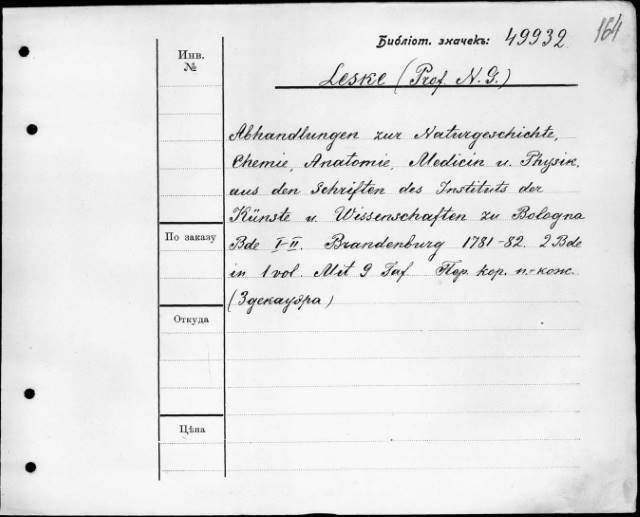 164
Библіот. значекъ: 49932
Инв.
№
Leske (Prof. N. G.)
Abhandlungen zur Naturgeschichte,
Chemie, Anatomie, Medicin u. Physik,
aus den Schriften des Instituts der
Künste u. Wissenschaften zu Bologna
По заказу
Bde I-II. Brandenburg 1781-82. 2 Bde
in 1 vol. Mit 9 Taf. Пер. кор. п.-кож.
(Здекауэра)
Откуда
Цѣна